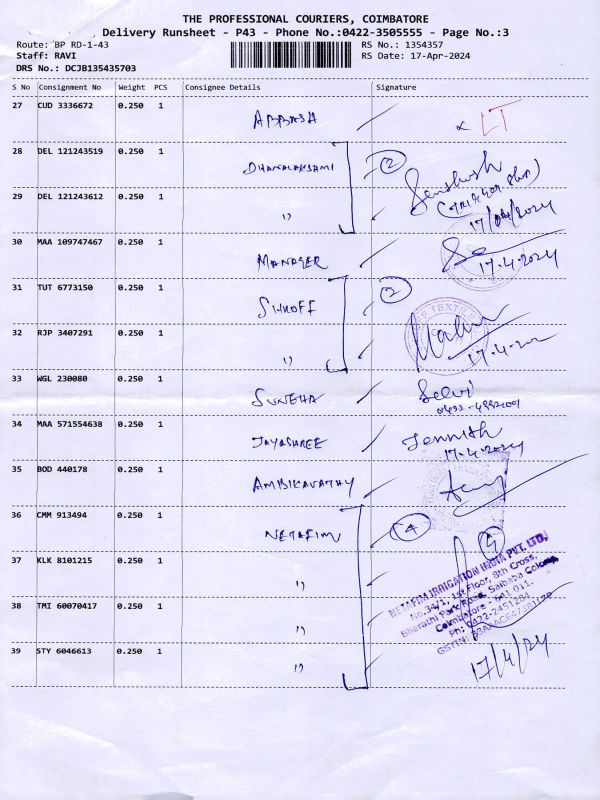 THE PROFESSIONAL COURIERS, COIMBATORE
Delivery Runsheet - P43 - Phone No.:0422-3505555 - Page No.:3
Route: BP RD-1-43 RS No.: 1354357
Staff: RAVI RS Date: 17-Apr-2024
DRS No.: DCJB135435703
S No Consignment No Weight PCS Consignee Details Signature
27 CUD 3336672 0.250 1 ABBASA x LT
28 DEL 121243519 0.250 1 DHANALAKSAMI 2 Santhosh
29 DEL 121243612 0.250 1 " 17/04/2024
30 MAA 109747467 0.250 1 MANAGER 17.4.2024
31 TUT 6773150 0.250 1 2 TEXTILE
32 RJP 3407291 0.250 1 " 17.4.
33 WGL 230080 0.250 1 SUNEHA Selvi
34 MAA 571554638 0.250 1 JAYASHREE 17.4.2024
35 BOD 440178 0.250 1 AMBIKAVATHY
36 CMM 913494 0.250 1 NETAFIM 4
37 KLK 8101215 0.250 1 "
38 TMI 60070417 0.250 1 "
39 STY 6046613 0.250 1 "
NETAFIM IRRIGATION INDIA PVT. LTD.
No.34/1, 1st Floor, 8th Cross,
Bharathi Park Road, Saibaba Colony,
Coimbatore - 641 011.
Ph: 0422-2451284
GSTIN:
17/4/24